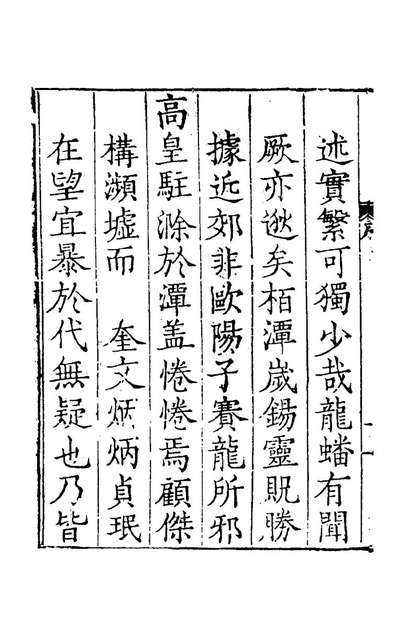 述實繁可獨少哉龍蟠有聞
厥亦逖矣栢潭歲錫靈貺勝
據近郊非歐陽子賽龍所邪
高皇駐滁於潭盖惓惓焉顧傑
構瀕墟而　奎文炳炳貞珉
在望宜暴於代無疑也乃皆